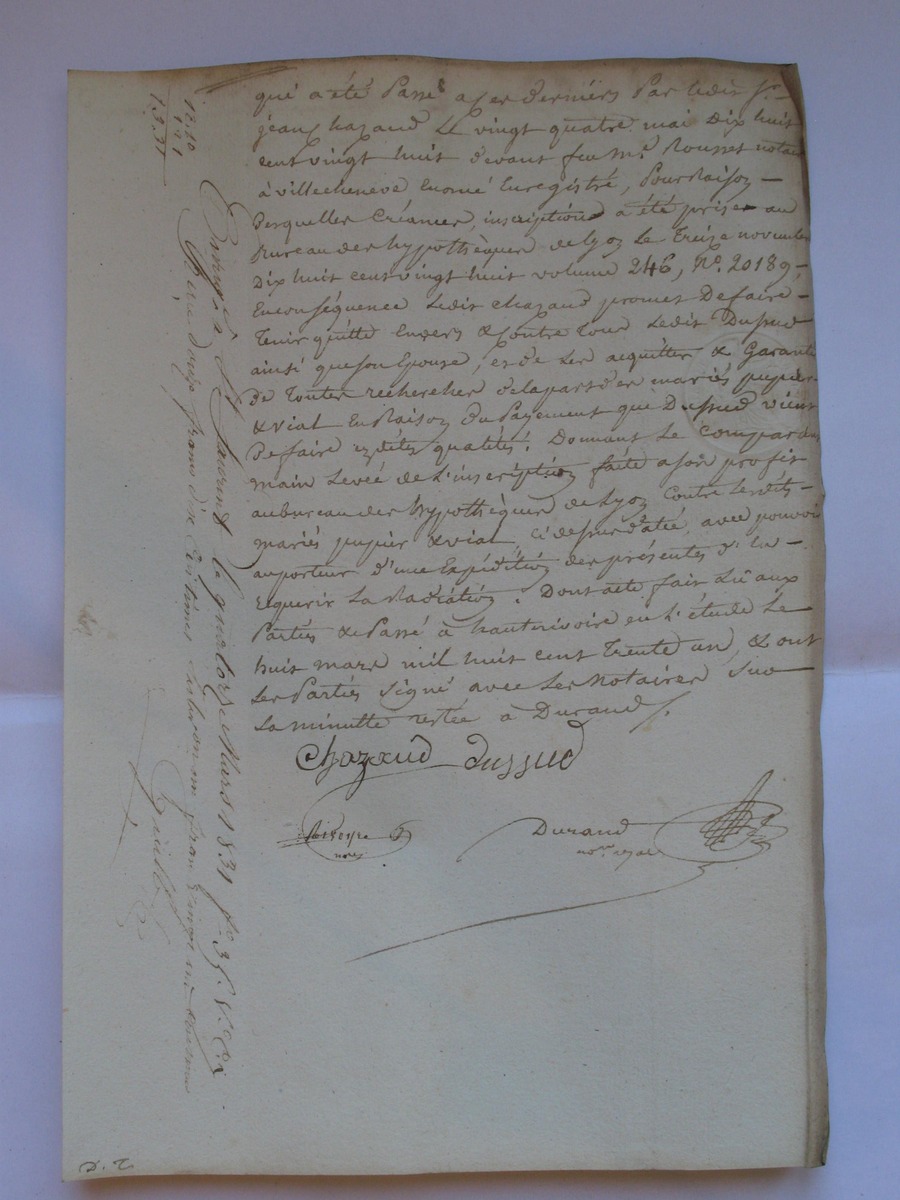 qui a été Passé a ces derniers Par ledit Sr
jean Chazaud Le vingt quatre mai Dix huit
cent vingt huit devant feu Me. Rousset notaire
à villecheneve Enomé Enregistré, Pour Raison
Desquelles Créances, inscription a été prise au
Bureau des hypothèques de Lyon Le Treize novembre
Dix huit cent vingt huit volume 246, No. 20189,
En conséquence Ledit Chazaud promet De faire
Tenir quitte Envers & Contre Tous Ledit Dussud
ainsi que son Epouse, et de Les acquitter & Garantir
De Toutes recherches de la part des mariés pupier
& vial En Raison du Payement que Dussud vient
De faire esdites qualités. Donnant Le Comparant
main Levée de L'inscription faite a son profit
au bureau des hypothèques de Lyon Contre Lesdits
mariés pupier & vial Ci dessus datée, avec pouvoir
au porteur d'une Expédition des présentes d'En
requerir La Radiation. Dont acte fait Lû aux
Parties & Passé à hauterivoire en L'étude Le
huit mars mil huit cent Trente un, & ont
Les Parties Signé avec Les Notaires Sur
La minutte restée à Durand
Chazaud Dussud
Durand
nore royal
nore
Enregistré à St Laurent le quatorze Mars 1831 fo 35 Vo
12.10
1.21
13.31
D. T.